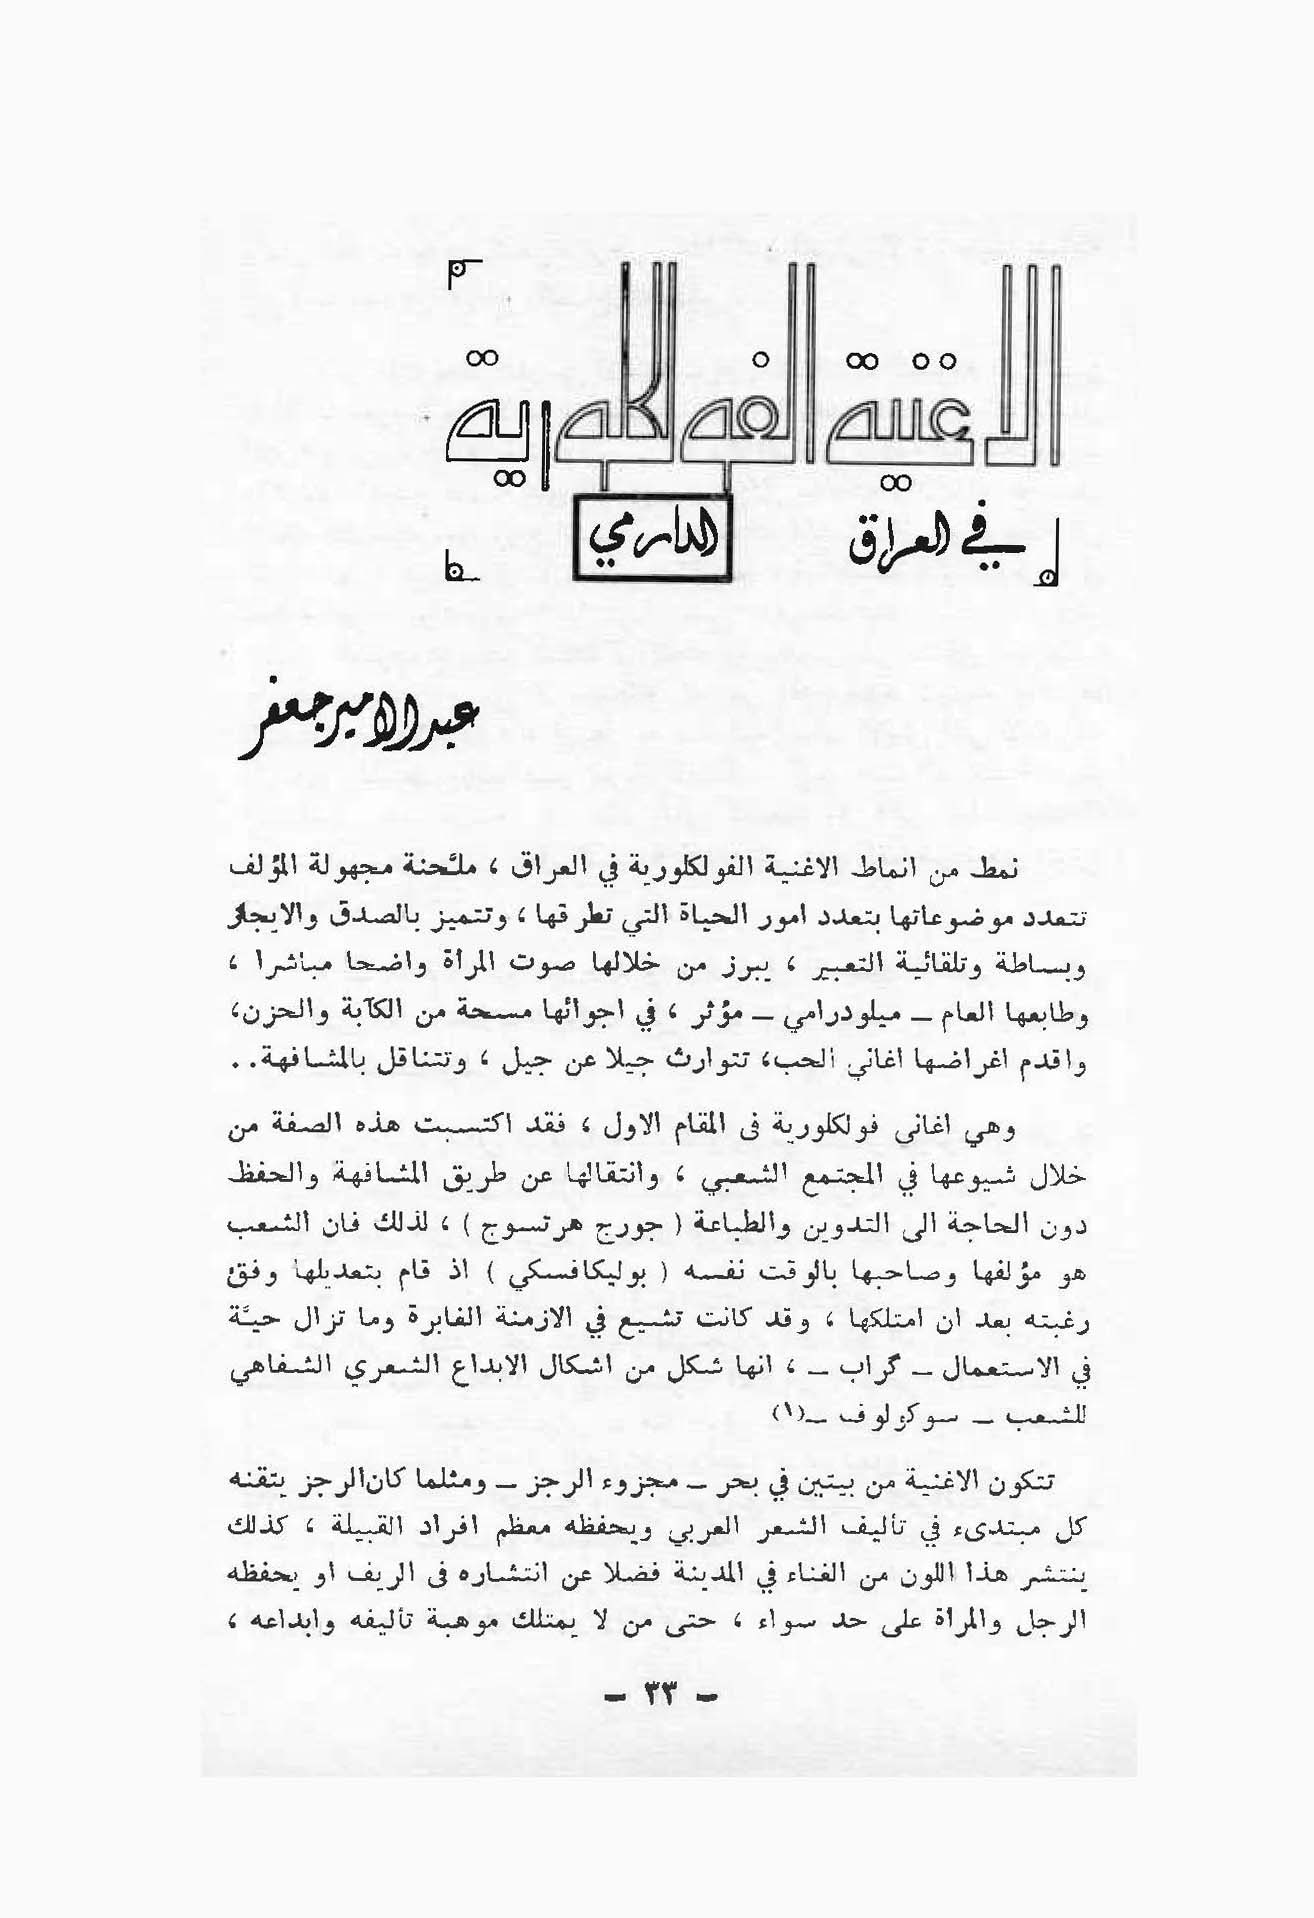 الاغنية الفولكلورية
في العراق
الدارمي
عبدالاميرجعفر
نمط من انماط الاغنية الفولكلورية في العراق ، ملحَّنة مجهولة المؤلف
تتعدد موضوعاتها بتعدد امور الحياة التي تطرقها ، وتتميز بالصدق والايجاز
وبساطة وتلقائية التعبير ، يبرز من خلالها صوت المرأة واضحا مباشرا ،
وطابعها العام – ميلودرامي – مؤثر ، في اجوائها مسحة من الكآبة والحزن،
واقدم اغراضها اغاني الحب، تتوارث جيلا عن جيل ، وتتناقل بالمشافهة..
وهي اغانى فولكلورية فى المقام الاول ، فقد اكتسبت هذه الصفة من
خلال شيوعها في المجتمع الشعبي ، وانتقالها عن طريق المشافهة والحفظ
دون الحاجة الى التدوين والطباعة ( جورج هرتسوج ) ، لذلك فان الشعب
هو مؤلفها وصاحبها بالوقت نفسه ( بوليكافسكي ) اذ قام بتعديلها وفق
رغبته بعد ان امتلكها ، وقد كانت تشيع في الازمنة الغابرة وما تزال حيَّة
في الاستعمال – گراب – ، انها شكل من اشكال الابداع الشعري الشفاهي
للشعب – سوكولوف –(١)
تتكون الاغنية من بيتين في بحر – مجزوء الرجز – ومثلما كان الرجز يتقنه
كل مبتدىء في تأليف الشعر العربي ويحفظه معظم افراد القبيلة ، كذلك
ينتشر هذا اللون من الغناء في المدينة فضلا عن انتشاره فى الريف او يحفظه
الرجل والمرأة على حد سواء ، حتى من لا يمتلك موهبة تأليفه وابداعه ،
– ٣٣ –